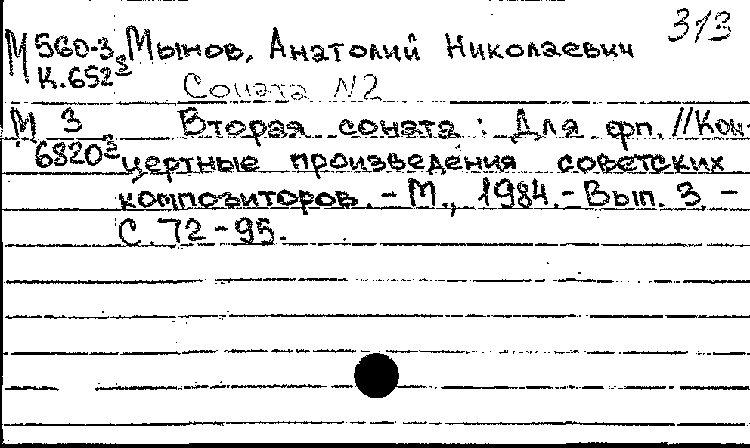 313
М 560-3 Мынов, Анатолий Николаевич
К.652³
Соната N2
М 3 Вторая соната : Для фп. // Кон-
6820³ цертные произведения советских
композиторов. - М., 1984. - Вып. 3. -
С. 72-95.